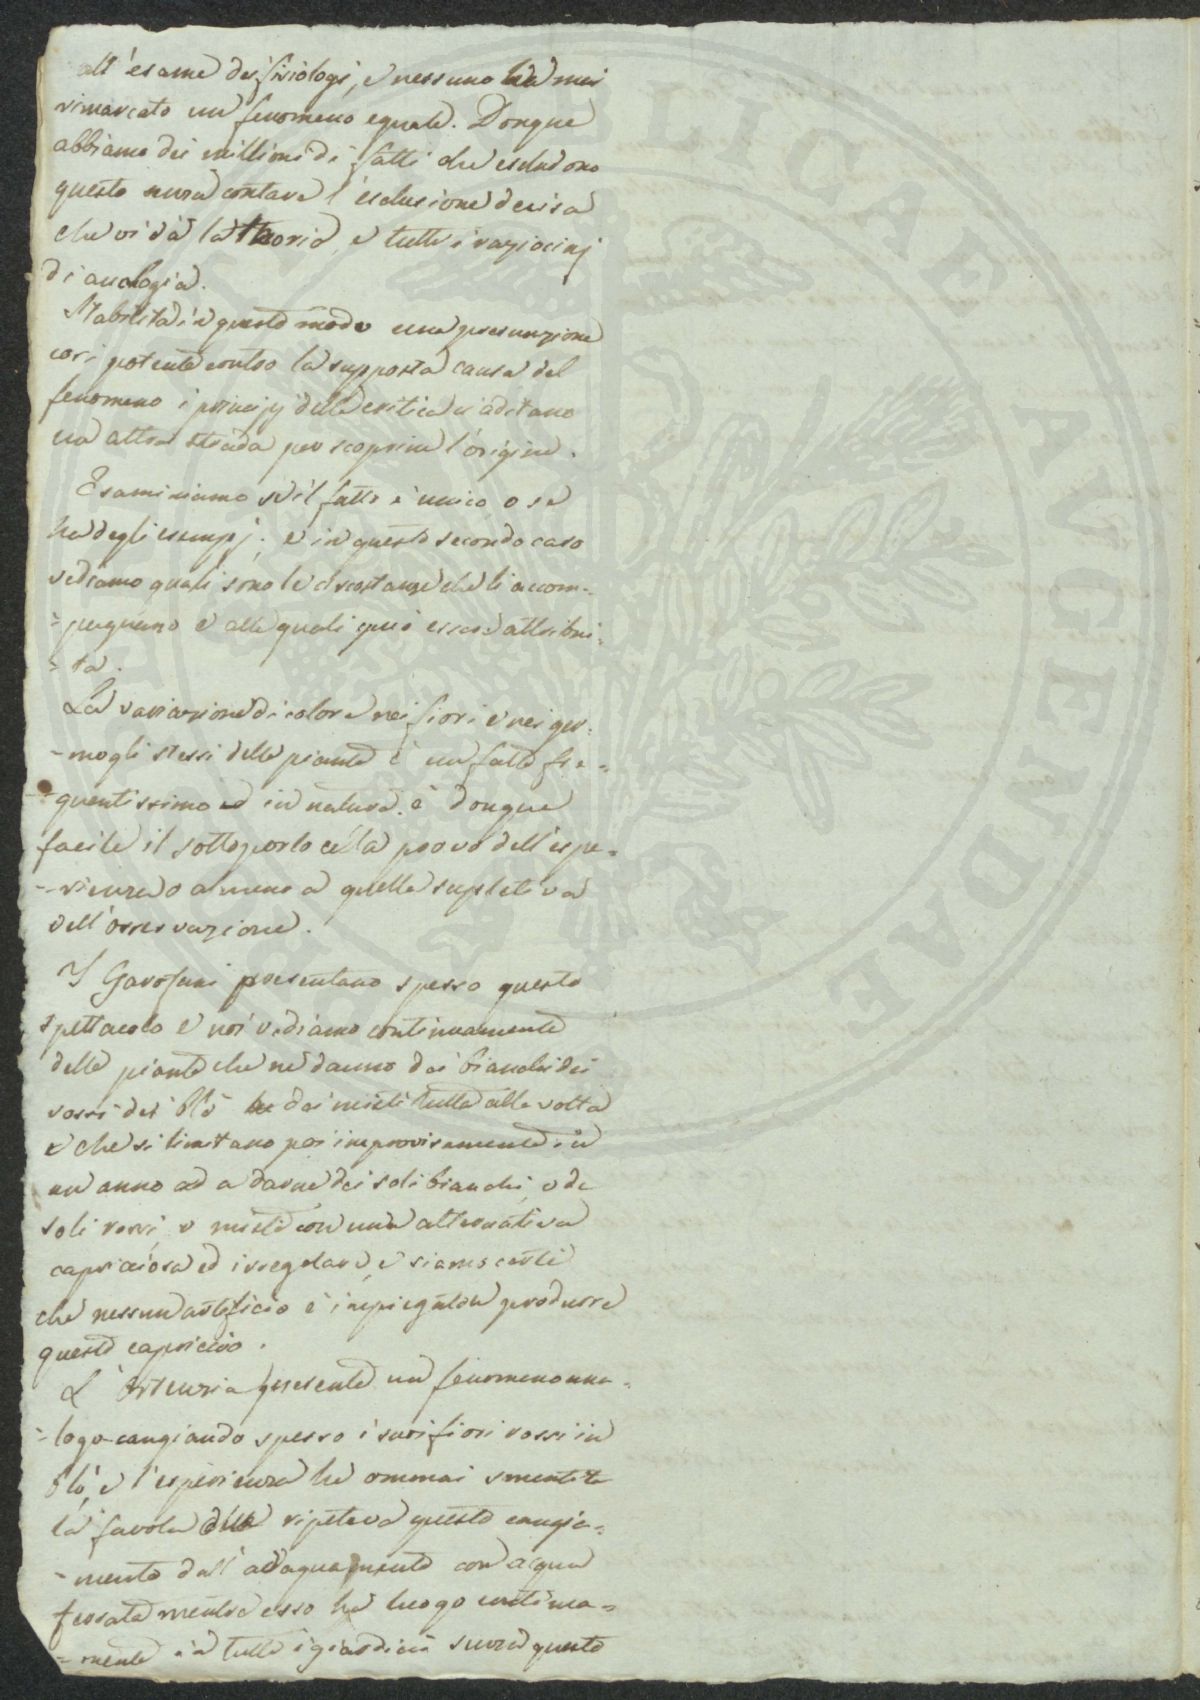 all'esame dei fisiologi, e nessuno ha mai
rimarcato un fenomeno eguale. Donque
abbiamo dei millioni di fatti che escludono
questo senza contare l'esclusione decisa
che vi dà la theoria, e tutti i raziocinj
di analogia.
Stabilita in questo modo una presunzione
così potente contro la supposta causa del
fenomeno i principj della critica ci aditano
un altra strada per scoprire l'origine.
Esaminiamo se il fatto è unico o se
ha degli esempj; e in questo secondo caso
vediamo quali sono le circostanze che li accom-
-pagnano e alle quali può essere attribui-
-ta.
La variazione di colore nei fiori e nei ger-
-mogli stessi delle piante è un fatto fre-
-quentissimo in natura. è donque
facile il sottoporlo alla prova dell'espe-
-rienza o almeno a quella supletiva
dell'osservazione.
I Garofani presentano spesso questo
spettacolo e noi vediamo continuamente
delle piante che ne danno dei bianchi dei
rossi dei blò dei misti tutte alla volta
e che si limitano poi improvisamente in
un anno ad a darne dei soli bianchi, o de
soli rossi, o misti con una alternativa
capriciosa ed irregolare, e siamo certi
che nessun arteficio è impiegato a produrre
questo capricio.
L'Ortensia presenta un fenomeno ana-
-logo cangiando spesso i suoi fiori rossi in
blò, e l'esperienza ha ommai smentita
la favola che ripeteva questo cangia-
-mento dall'adaquamento con acqua
ferrata mentre esso ha luogo continua-
-mente in tutti i giardini senza questo